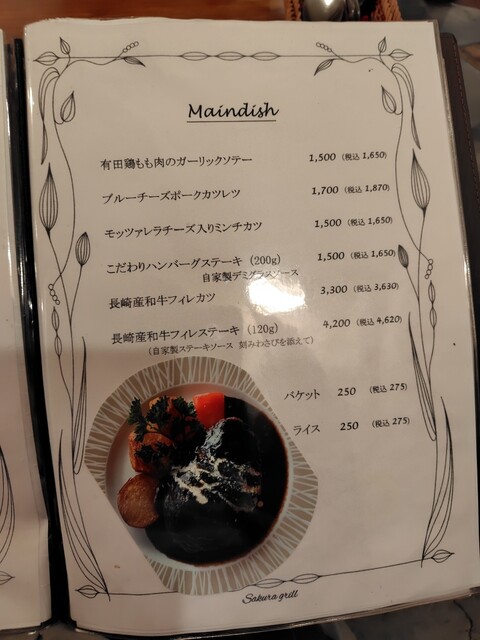 Maindish
有田鶏もも肉のガーリックソテー 1,500 (税込 1,650)
ブルーチーズポークカツレツ 1,700 (税込 1,870)
モッツァレラチーズ入りミンチカツ 1,500 (税込 1,650)
こだわりハンバーグステーキ (200g) 1,500 (税込 1,650)
自家製デミグラスソース
長崎産和牛フィレカツ 3,300 (税込 3,630)
長崎産和牛フィレステーキ (120g) 4,200 (税込 4,620)
(自家製ステーキソース 刻みわさびを添えて)
バケット 250 (税込 275)
ライス 250 (税込 275)
Sakura grill